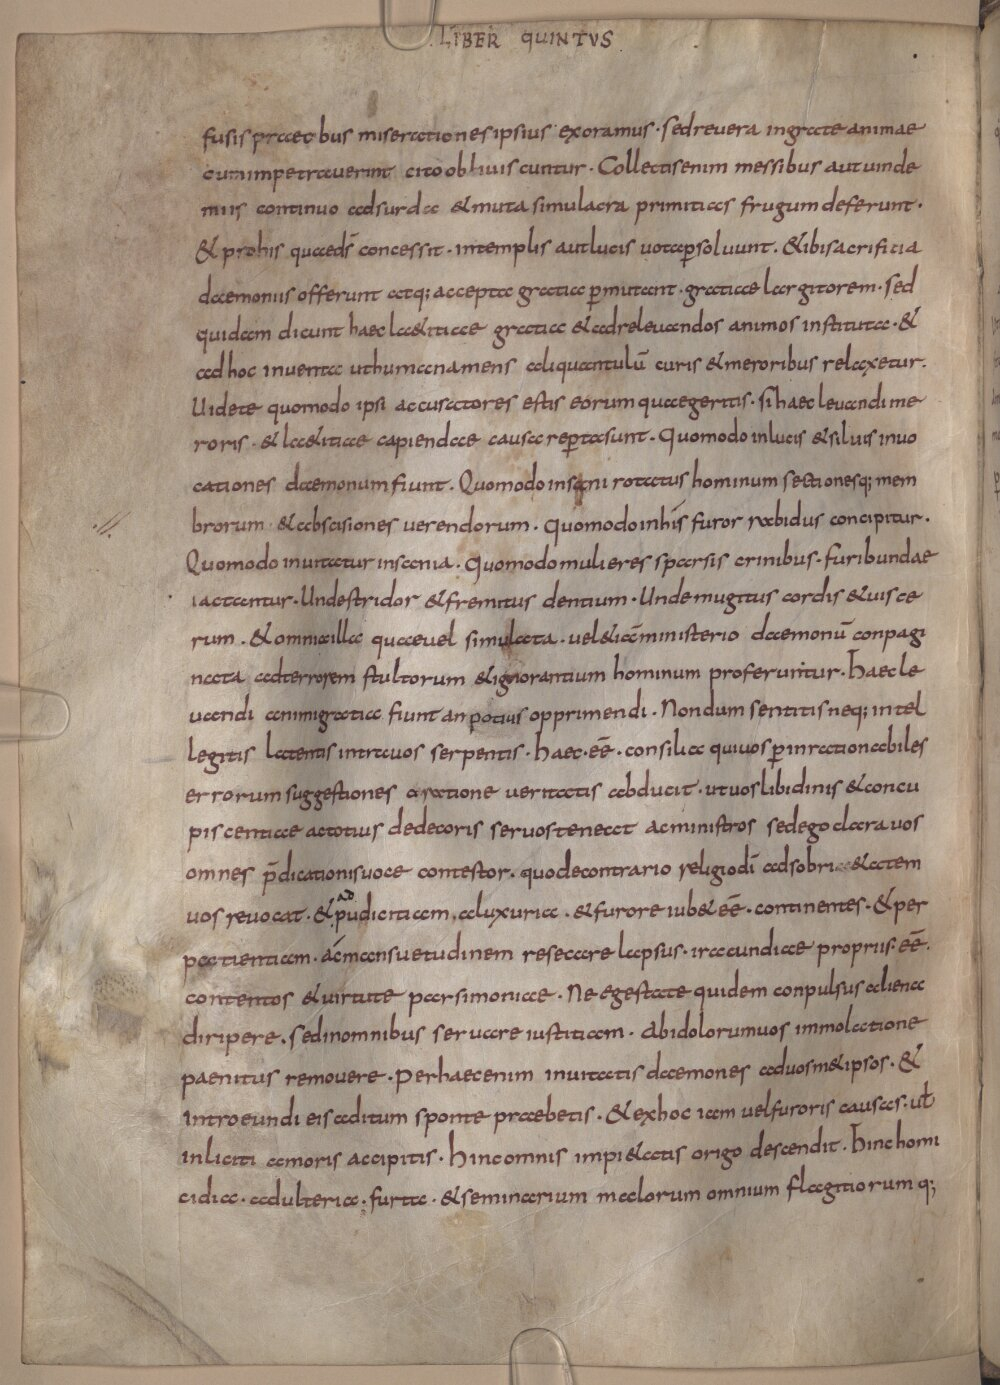 LIBER QUINTVS
fusis praecibus miserationes ipsius exoramus · sed revera ingrate animae
cum impetraverint cito obliuis cuntur · Collectis enim messibus aut uinde
miis continuo ad surda & muta simulacra primitias frugum deferunt ·
& pro his quae ds̄ concessit · in templis aut lucis uota p̱soluunt · & ibi sacrificia
daemoniis offerunt atq; accepta gratia p̱mutant · gratiae largitorem · sed
quidam dicunt haec la&itiae gratia & ad releuandos animos instituta · &
ad hoc inuenta ut humana mens aliquantulū curis & meroribus relaxetur.
Uidete quomodo ipsi accusatores estis eorum quae geritis · si haec leuandi me
roris · & la&itiae capiendae causa rep̱ta sunt · Quomodo in lucis & siluis inuo
cationes daemonum fiunt · Quomodo insani rotatus hominum sectionesq; mem
brorum & abscisiones uerendorum · Quomodo in hís furor rabidus concipitur ·
Quomodo inuitatur insania · Quomodo mulieres sparsis crinibus · furibundae
iactantur · Unde stridor & fremitus dentium · Unde mugitus cordis & uisce
rum · & omnia illa quae uel simulata · uel &iā ministerio daemonū conpagi
nata ad terrorem stultorum & ignorantium hominum proferuntur · Haec le
uandi animi gratia fiunt an potius opprimendi · Nondum sentitis neq; intel
legitis latentis intra uos serpentis · haec · eē · consilia qui uos p̱ inrationabiles
errorum suggestiones a ratione ueritatis abducit · ut uos libidinis & concu
piscentiae ac totius dedecoris seruos teneat ac ministros sed ego clara uos
omnes p̄dicationis uoce contestor · quod e contrario religio dī ad sobria & atem
uos reuocat · & ad pudicitiam · a luxuria · & furore iub& eē · continentes · & per
patientiam · ac mansuetudinem resecare lapsus · iracundiae propriis · eē ·
contentos & uirtute parsimoniae · Ne egestate quidem conpulsus aliena
diripere · sed in omnibus seruare iustitiam · Ab idolorum uos immolatione
paenitus remouere · Per haec enim inuitatis daemones ad uosm&ipsos · &
introeundi eis aditum sponte praebetis · & ex hoc iam uel furoris causas · ut̄
inliciti amoris accipitis · Hinc omnis impi&atis origo descendit · Hinc homi
cidia · adulteria · furta · & seminarium malorum omnium flagitiorumq;